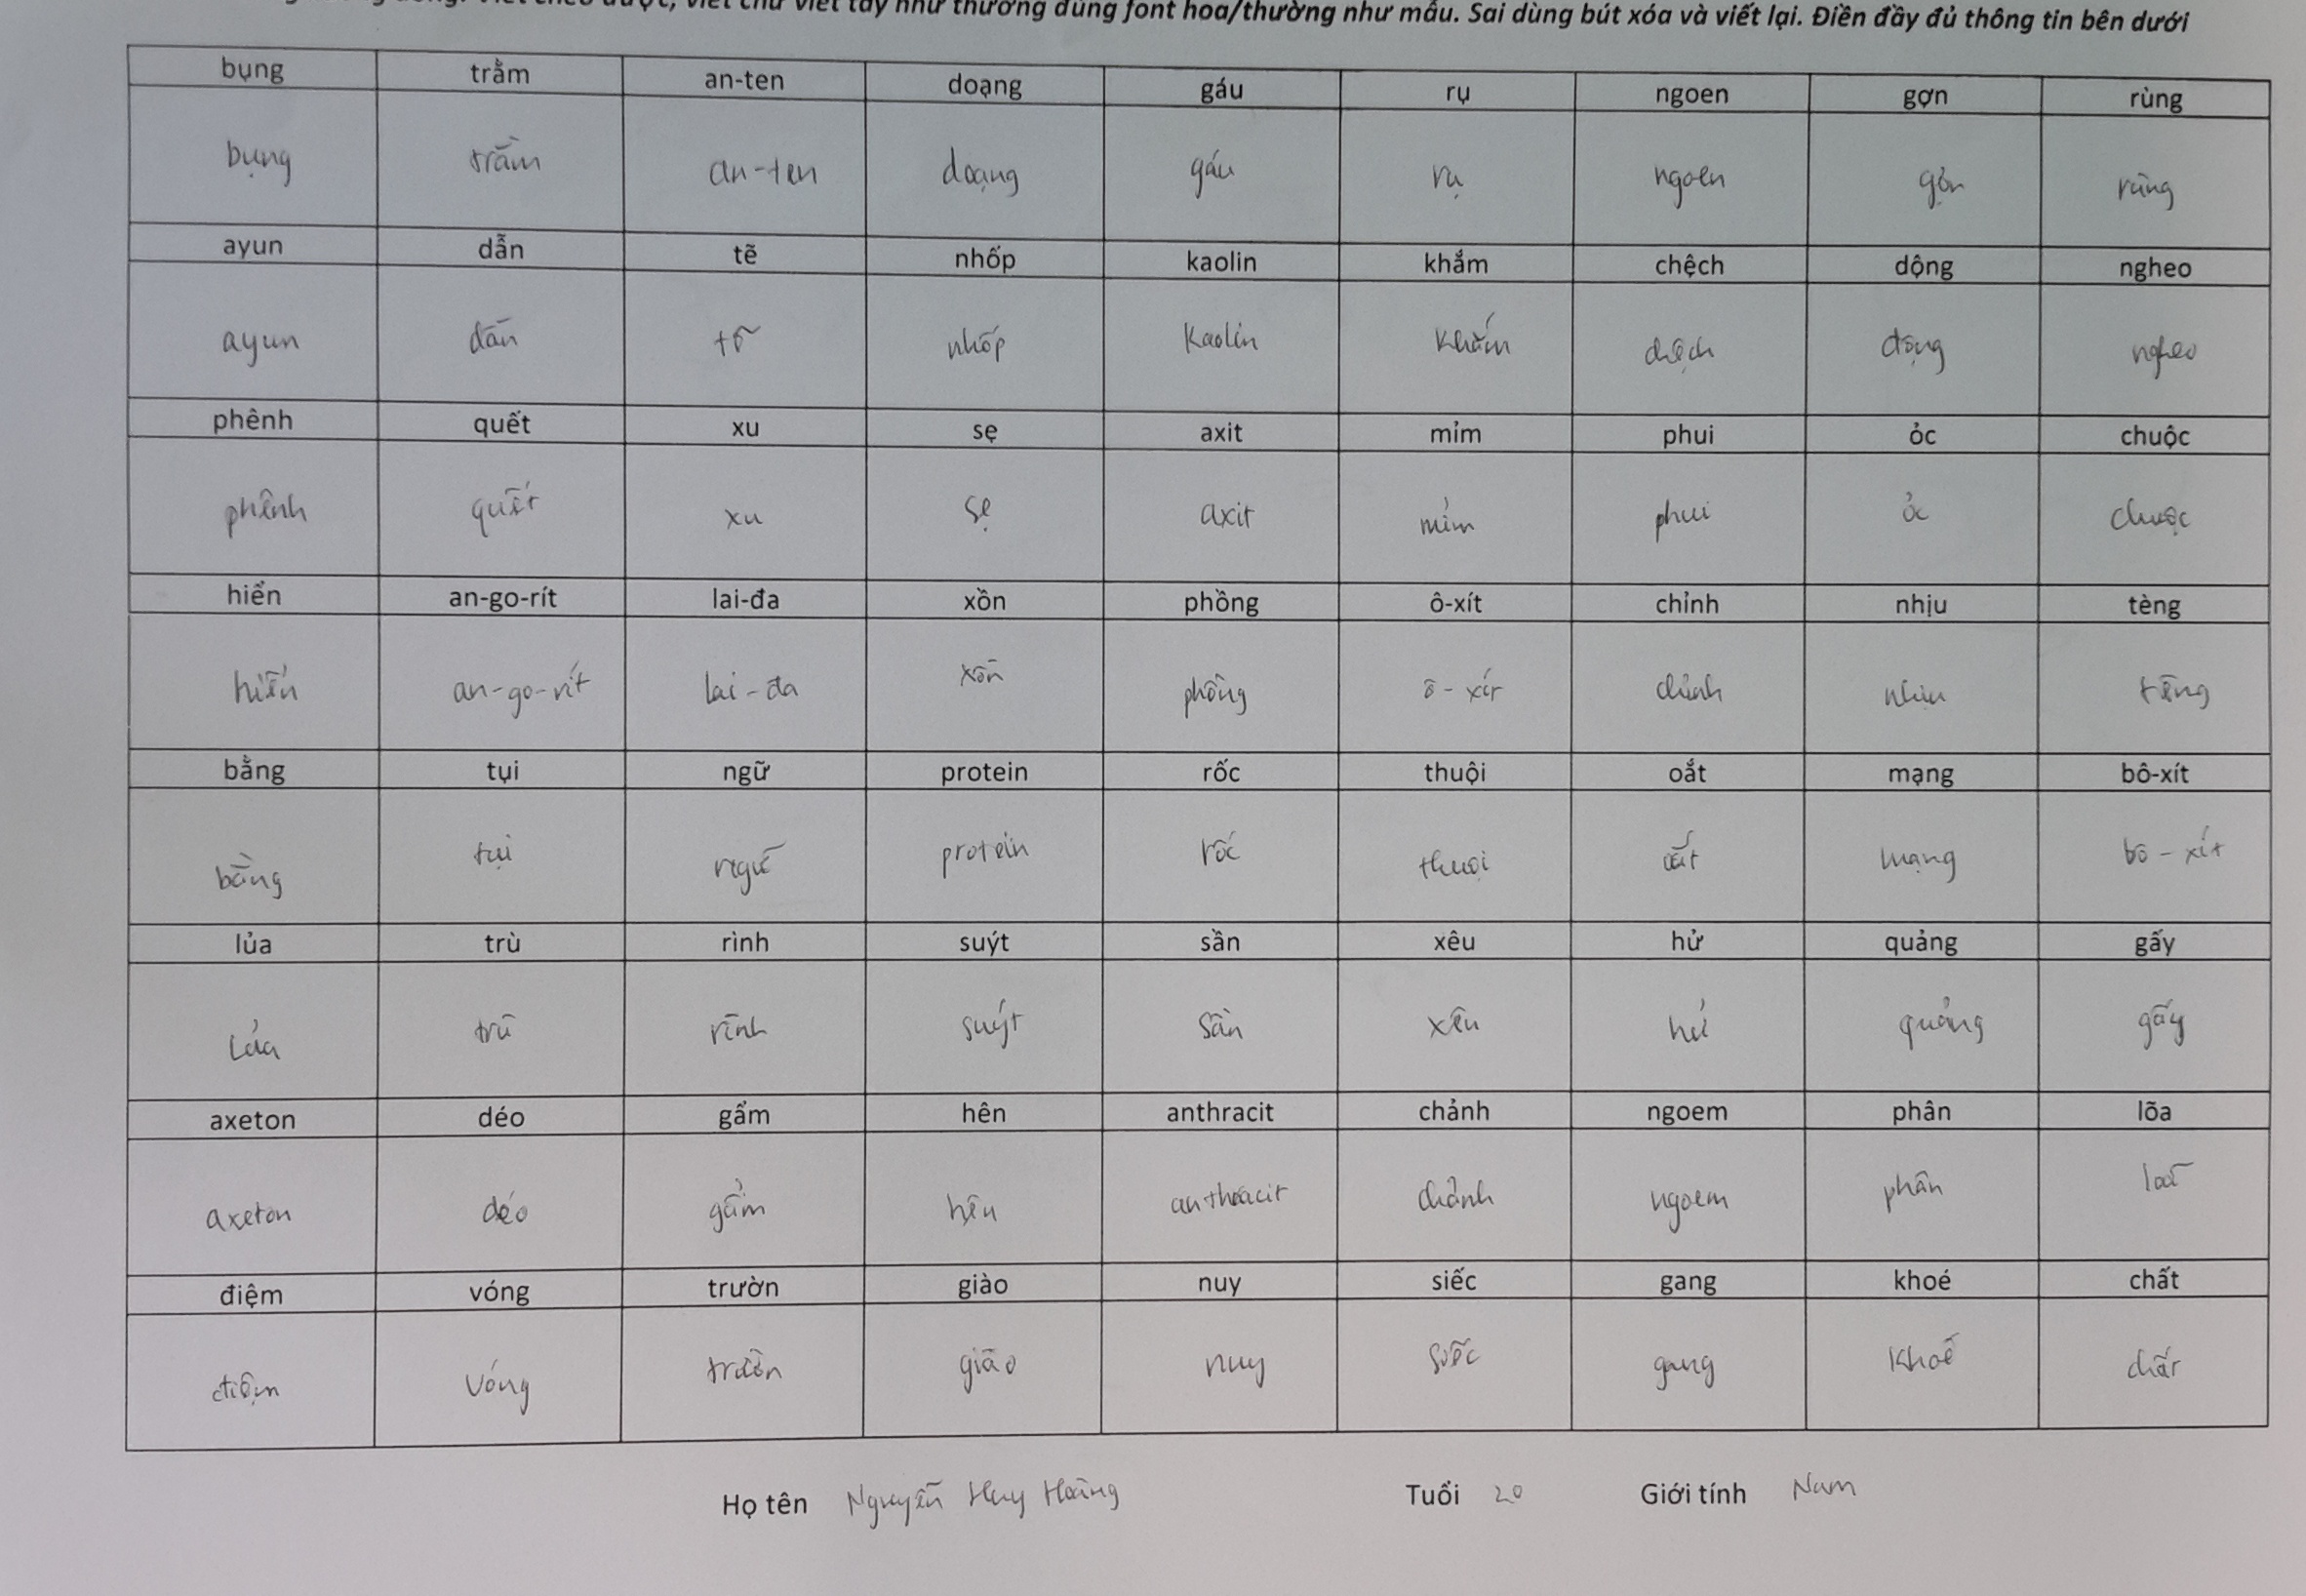 viết chữ viết tay như thường dùng font hoa/thường như mẫu. Sai dùng bút xóa và viết lại. Điền đầy đủ thông tin bên dưới
bụng trằm an-ten doạng gáu rụ ngoen gợn rùng
bụng trằm an-ten doạng gáu rụ ngoen gợn rùng
ayun dẫn tẽ nhốp kaolin khắm chệch dộng ngheo
ayun dẫn tẽ nhốp kaolin khắm chệch dộng ngheo
phênh quết xu sẹ axit mỉm phui ỏc chuộc
phênh quết xu sẹ axit mỉm phui ỏc chuộc
hiển an-go-rít lai-đa xồn phồng ô-xít chỉnh nhịu tèng
hiển an-go-rít lai-đa xồn phồng ô-xít chỉnh nhịu tèng
bằng tụi ngữ protein rốc thuội oắt mạng bô-xít
bằng tụi ngữ protein rốc thuội oắt mạng bô-xít
lủa trù rình suýt sần xêu hử quảng gấy
lủa trù rình suýt sần xêu hử quảng gấy
axeton déo gẩm hên anthracit chảnh ngoem phân lõa
axeton déo gẩm hên anthracit chảnh ngoem phân loã
điệm vóng trườn giào nuy siếc gang khoé chất
điệm vóng trườn giào nuy siếc gang khoé chất
Họ tên Nguyễn Huy Hoàng Tuổi 20 Giới tính Nam